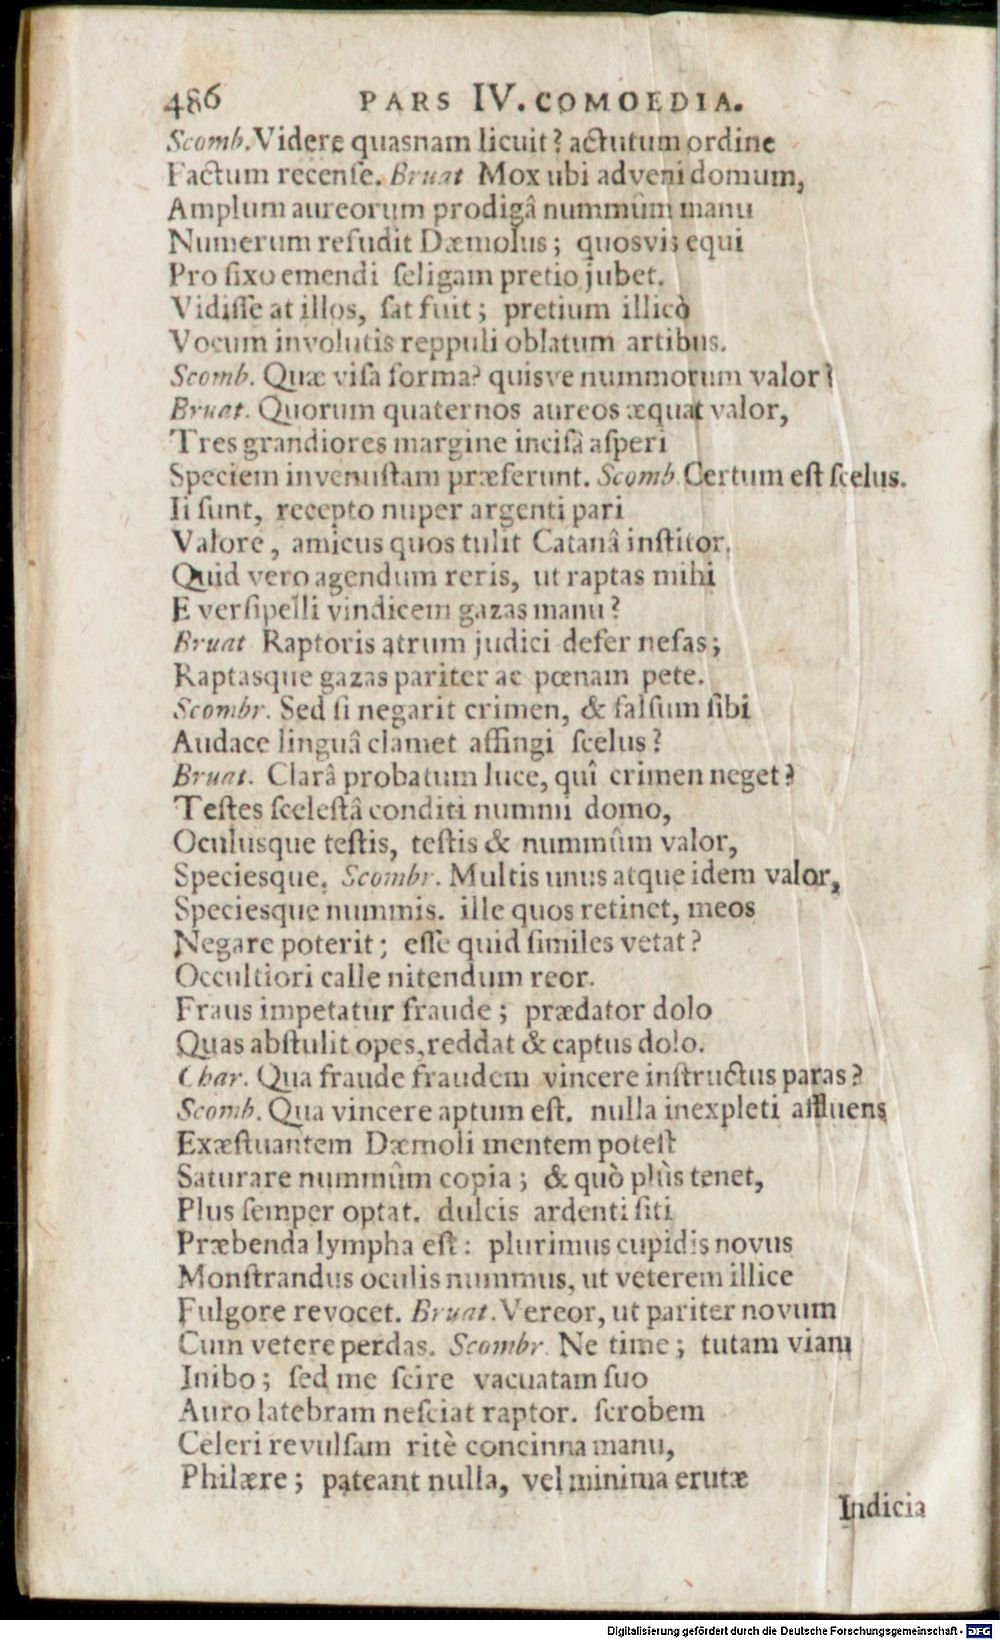 486 PARS IV. COMOEDIA.
Scomb. Videre quasnam licuit? actutum ordine
Factum recenſe. Bruat Mox ubi adveni domum,
Amplum aureorum prodigâ nummûm manu
Numerum refudit Dæmolus; quosvis equi
Pro fixo emendi ſeligam pretio jubet.
Vidiſſe at illos, ſat fuit; pretium illicò
Vocum involutis reppuli oblatum artibus.
Scomb. Quæ viſa forma? quisve nummorum valor?
Bruat. Quorum quaternos aureos æquat valor,
Tres grandiores margine inciſâ aſperi
Speciem invenuſtam præferunt. Scomb. Certum eſt ſcelus.
Ii ſunt, recepto nuper argenti pari
Valore, amicus quos tulit Catanâ inſtitor.
Quid vero agendum reris, ut raptas mihi
E verſipelli vindicem gazas manu?
Bruat Raptoris atrum judici defer nefas;
Raptasque gazas pariter ac pœnam pete.
Scombr. Sed ſi negarit crimen, & falſum ſibi
Audace linguâ clamet affingi ſcelus?
Bruat. Clarâ probatum luce, quî crimen neget?
Teſtes ſceleſtâ conditi nummi domo,
Oculusque teſtis, teſtis & nummûm valor,
Speciesque. Scombr. Multis unus atque idem valor,
Speciesque nummis. ille quos retinet, meos
Negare poterit; eſſe quid ſimiles vetat?
Occultiori calle nitendum reor.
Fraus impetatur fraude; prædator dolo
Quas abſtulit opes, reddat & captus dolo.
Char. Qua fraude fraudem vincere inſtructus paras?
Scomb. Qua vincere aptum eſt. nulla inexpleti affluens
Exæſtuantem Dæmoli mentem poteſt
Saturare nummûm copia; & quò plùs tenet,
Plus ſemper optat. dulcis ardenti ſiti
Præbenda lympha eſt: plurimus cupidis novus
Monſtrandus oculis nummus, ut veterem illice
Fulgore revocet. Bruat. Vereor, ut pariter novum
Cum vetere perdas. Scombr. Ne time; tutam viam
Inibo; ſed me ſcire vacuatam ſuo
Auro latebram neſciat raptor. ſcrobem
Celeri revulſam ritè concinna manu,
Philære; pateant nulla, vel minima erutæ
Indicia
Digitalisierung gefördert durch die Deutsche Forschungsgemeinschaft - DFG